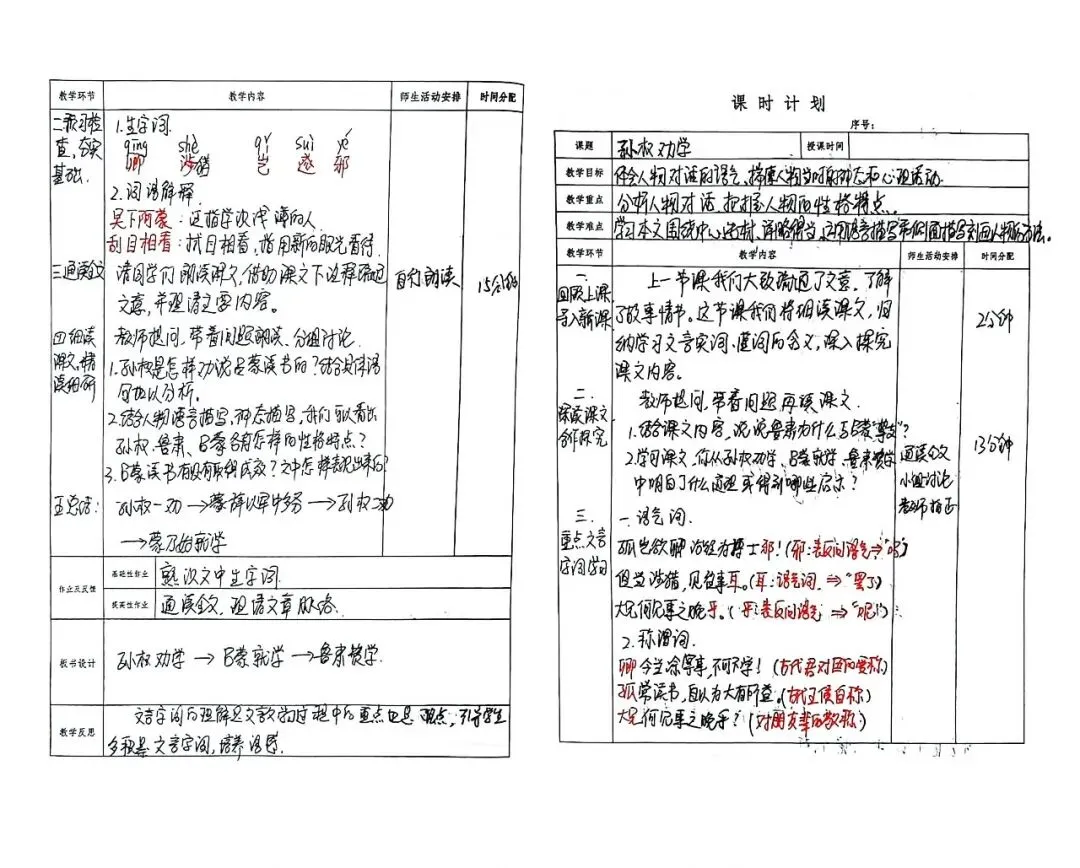 教学环节 教学内容 师生活动安排 时间分配
二.预习检查,夯实基础.
1.生字词.
qīng shè qǐ suì yé
卿 涉猎 岂 遂 邪
2.词语解释.
吴下阿蒙:这指学识浅薄的人
刮目相看:拭目相看,指用新的眼光看待.
三.通读全文
请同学们朗读课文,借助课文下注释疏通
文章,并理清主要内容。
自行朗读
15分钟
四.细读课文,精读细研
教师提问,带着问题朗读、分组讨论.
1.孙权是怎样劝说吕蒙读书的?结合具体语
句加以分析.
2.结合人物语言描写,神态描写,我们可以看出
孙权.鲁肃、吕蒙各有怎样的性格特点?
3.吕蒙读书有没有取得成效?文中怎样表现出来的?
五.总结:
孙权一劝→蒙辞以军中多务→孙权二劝
→蒙乃始就学
作业及反馈
基础性作业 熟识文中生字词.
提高性作业 通读全文,理清文章脉络.
板书设计 孙权劝学→吕蒙就学→鲁肃赞学.
教学反思
文言字词的理解是文言教学过程中的重点也是难点,引导学生
多积累文言字词,培养语感.
课时计划
序号:
课题 孙权劝学 授课时间
教学目标 体会人物对话的语气,揣摩人物当时的神态和心理活动.
教学重点 分析人物对话,把握人物的性格特点.
教学难点 学习本文围绕中心选材、详略得当,运用语言描写和侧面描写刻画人物的方法。
教学环节 教学内容 师生活动安排 时间分配
一.回顾上课导入新课
上一节课我们大致疏通了文章.了解
了故事情节。这节课我们将细读课文,归
纳学习文言实词、虚词的含义,深入探究
课文内容。
2分钟
二.深读课文,合作探究
教师提问,带着问题再读课文.
1.结合课文内容,说说鲁肃为什么与吕蒙"结友"?
2.学习课文,你从孙权劝学、吕蒙就学、鲁肃赞学
中明白了什么道理或得到哪些启示?
通读全文
小组讨论
老师指正
13分钟
三.重点文言字词学习
一.语气词.
孤岂欲卿治经为博士邪!(邪:表反问语气⇒"吗")
但当涉猎,见往事耳.(耳:语气词,⇒"罢了")
大兄何见事之晚乎。(乎:表反问语气⇒"呢")
2.称谓词.
卿今当涂掌事,不可不学!(古代君对臣的爱称)
孤常读书,自以为大有所益.(古代王侯自称)
大兄何见事之晚乎?(对朋友辈的敬称)